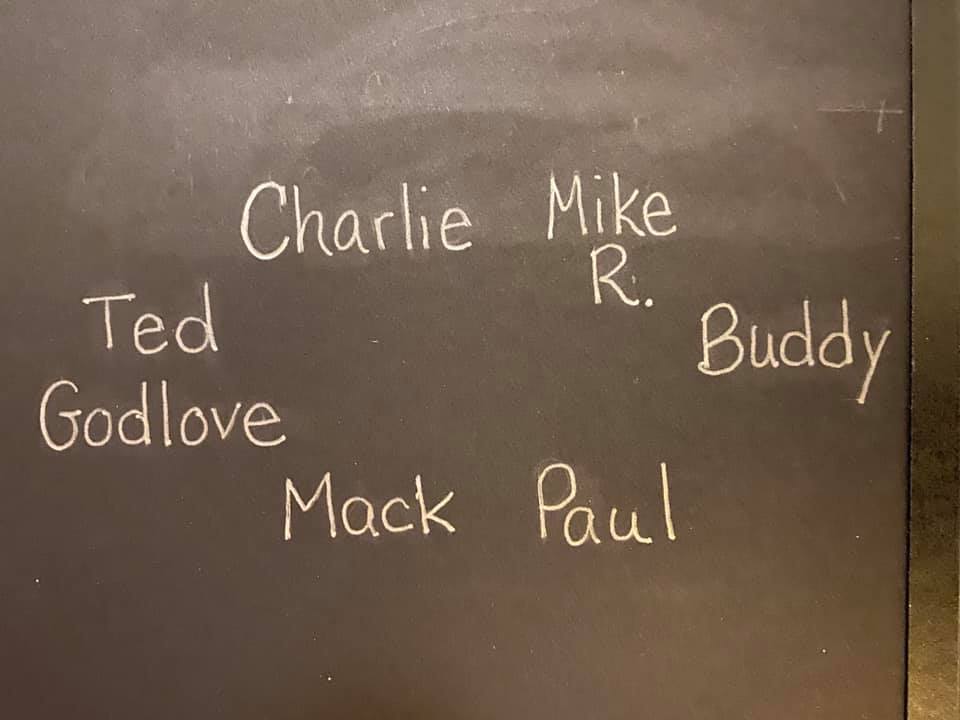 Charlie Mike
R.
Ted
Buddy
Godlove
Mack Paul